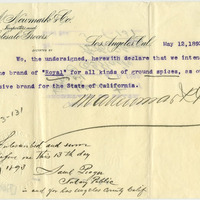 & Co.
Los Angeles, Cal. May 12, 189
We, the undersigned, herewith declare that we inten
e brand of "Royal" for all kinds of ground spices, as ou
sive brand for the State of California.
Subscribed and sworn
before me this 13th day
1893
Notary Public
in and for Los Angeles County Calif.